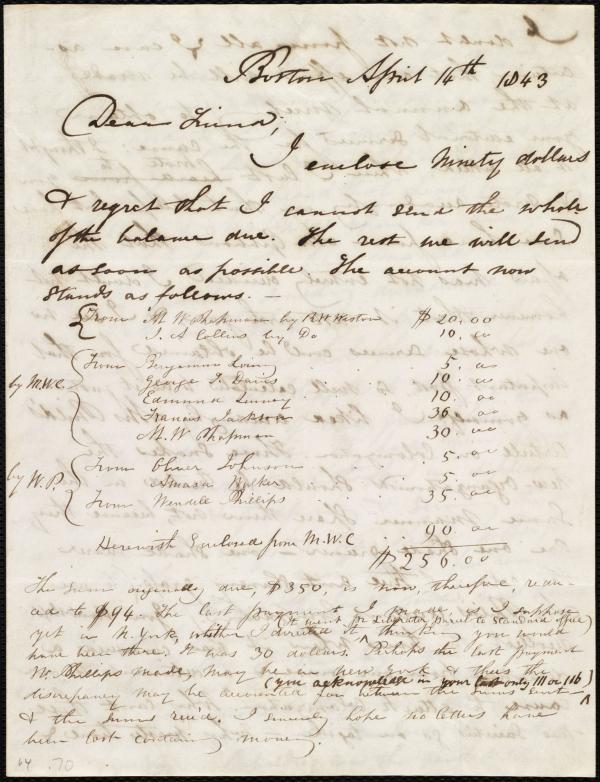 Boston April 14th 1843
Dear Friend;
I enclose Ninety dollars
& regret that I cannot send the whole
of the balance due. The rest we will send
as soon as possible. The account now
stands as follows. —
From M. W. Chapman by R. W. Weston $20.00
J. A. Collins by Do 10.00
From Benjamin 5.00
by M.W.C. George T. Davis 10.00
Edmund Quincy 10.00
Francis Jackson 36.00
M. W. Chapman 30.00
by W. P. From Oliver Johnson 5.00
Amasa Walker 5.00
From Wendell Phillips 35.00
Herewith Enclosed from M.W.C 90 00
$256.00
The sum originally due, $350, is now, therefore, redu-
ced to $94. The last payment I made, is I suppose
(it went pr Liberator parcel to Standard office)
yet in N. York, whither I directed it thinking you would
have been there. It was 30 dollars. Perhaps the last payment
W. Phillips made, may be in New York & thus the
(you acknowledge in your last only 111 or 116)
discrepancy may be accounted for between the sums sent
& the sums rec'd. I sincerely hope no letters have
been lost containing money.
64 .70